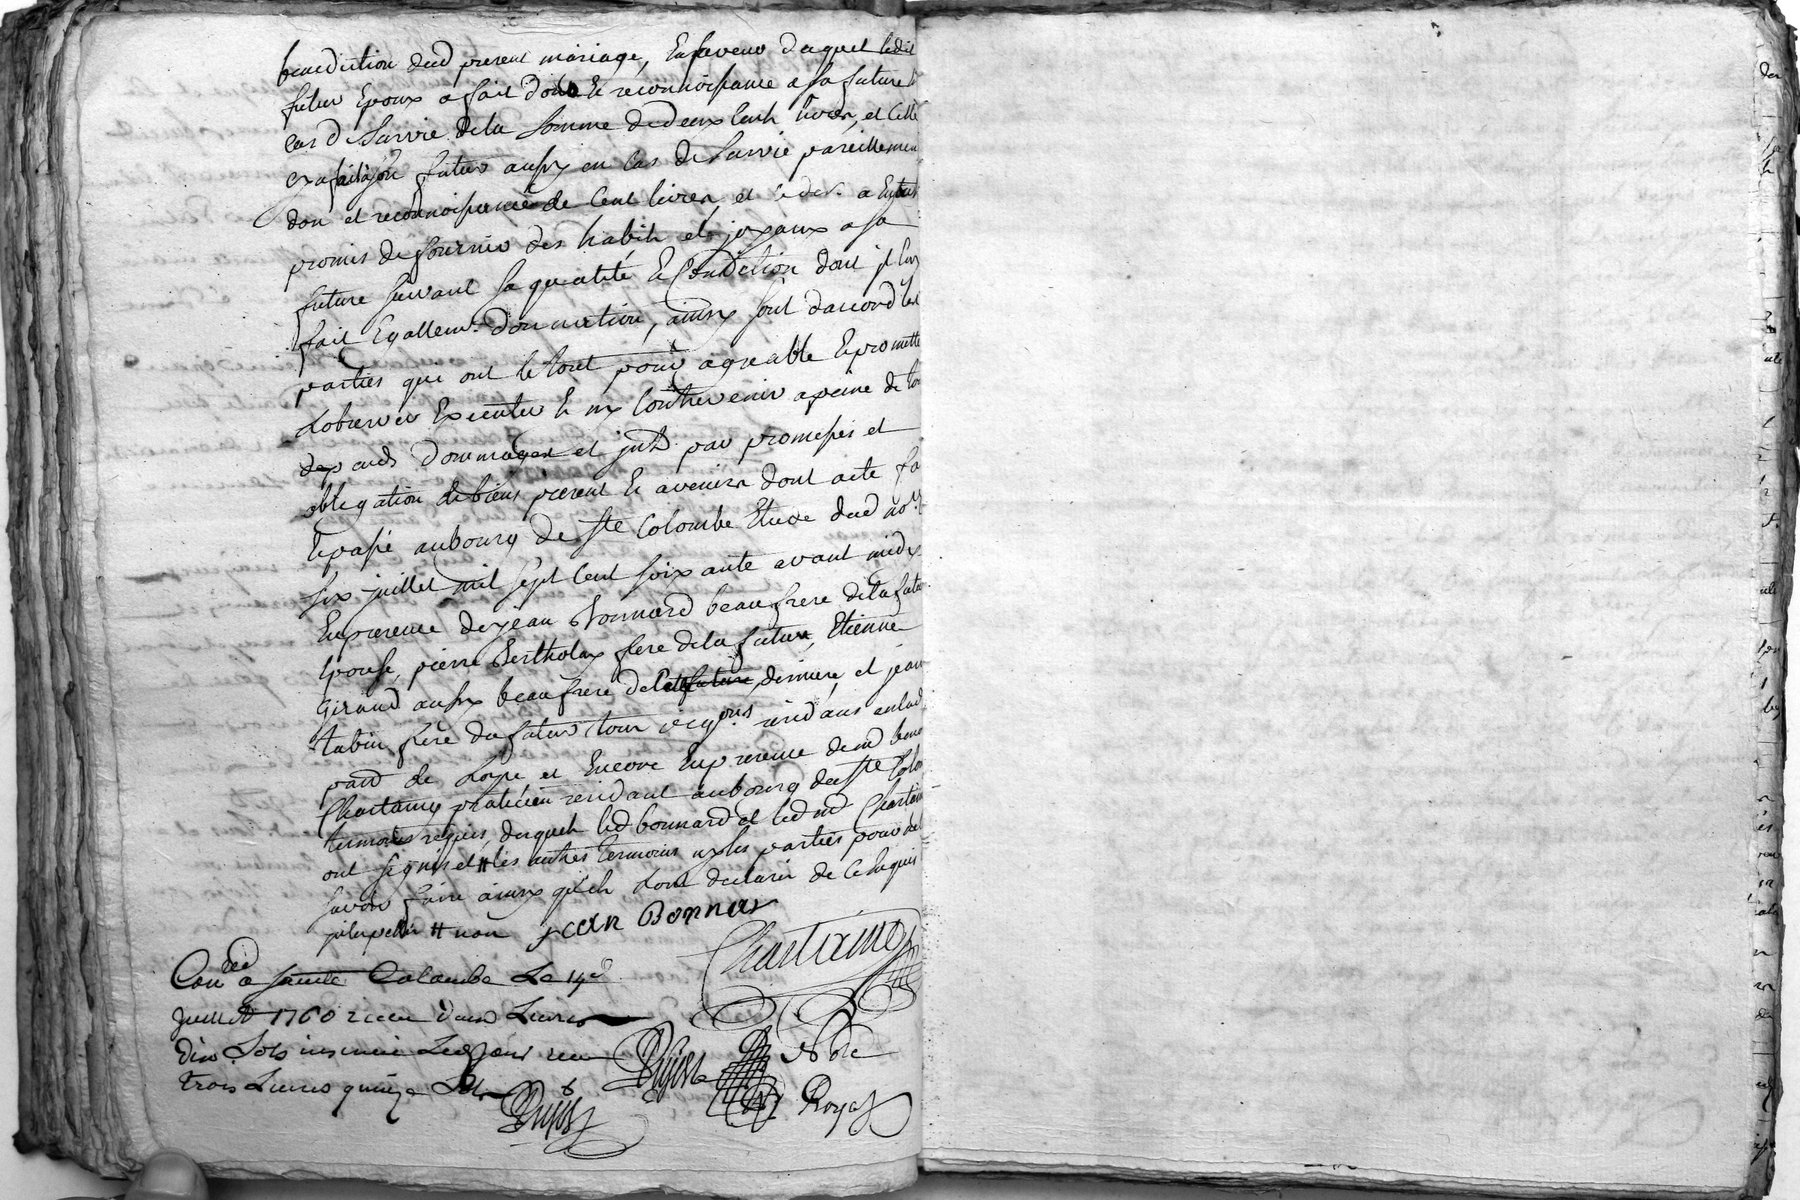 benediction dud present mariage, Enfaveur duquel ledit
futur Epoux a fait don Et reconnoissance a sa future
cas de Survie dela Somme de deux Cent livres, et Celle
cy a fait a son futur aussy en Cas de Survie pareillement
don et reconnoissance de Cent livres, et le der. a
promis de fournir des habits et joyaux a sa
future suivant sa qualité Et Condition dont jl luy
fait Egallemt. donnation, ainsy sont d'accord les
parties qui ont le tout pour agreable Et promettent
lobserver Executer Et ny Contrevenir a peine de tous
depends dommages et jnts. par promesses et
obligation de biens present Et avenirs dont acte fait
Et passé au bourg de Ste Colombe Etude dud nore
six juillet mil Sept Cent soixante avant midy
En presence de jean Bonnard beaufrere dela future
Epouse, pierre Bertholay frere dela future, Etienne
Giraud aussy beaufrere de la future derniere, et jean
tabin frere du futur tous vigns. residans en lad.
parr de et Encore En presence de md
Chartainy praticien residant au bourg de Ste Colombe
temoins requis, desquels led bonnard et led md Chartainy
ont signés et # les autres temoins ny les parties pour ne
savoir faire ainsy qu'ils l'ont declaré de Ce Enquis
# non jean Bonnar
Chartainy
Conllé a Sainte Colombe Le 14e
Juillet 1760 receu deux Livres
dix Sols insinué Led Jour receu
trois Livres quinze Sols
Nore
Royal